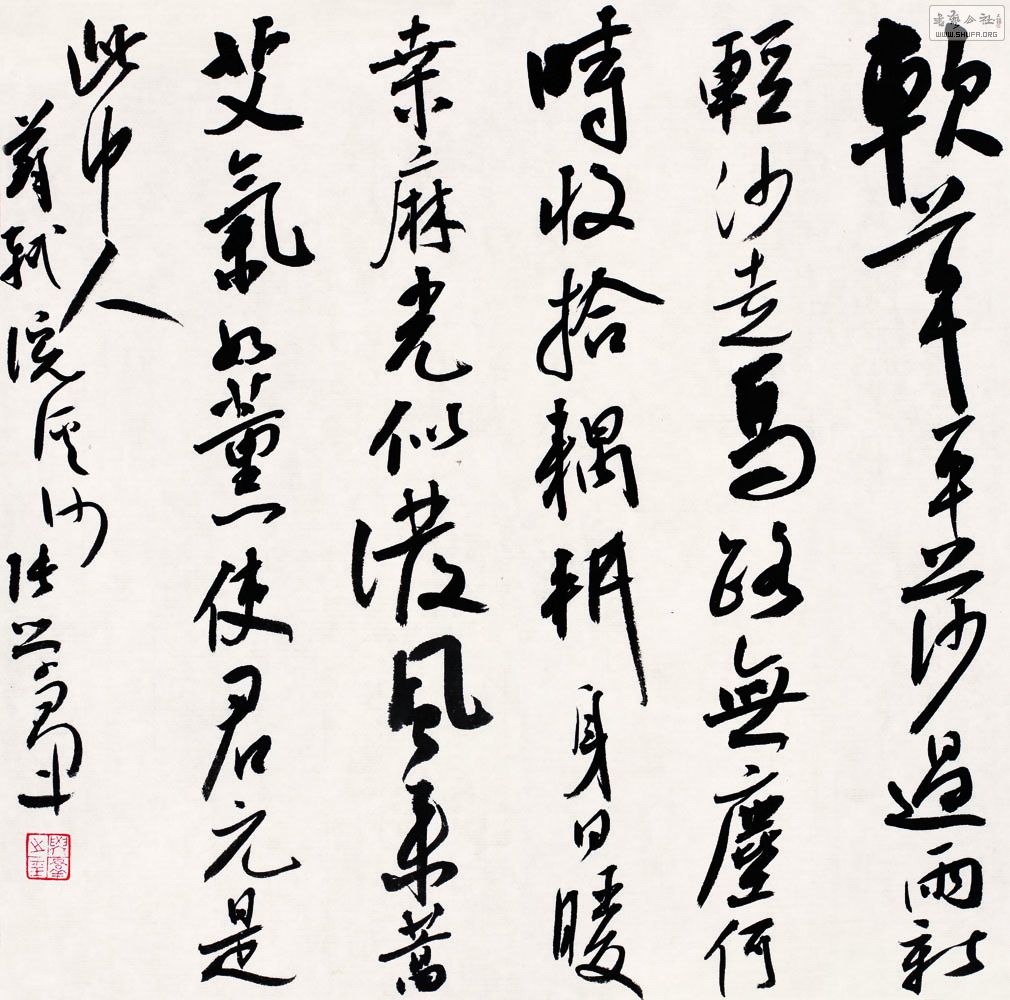 軟草平莎過雨新
輕沙走馬路無塵何
時收拾耦耕身日暖
桒麻光似潑風來蒿
艾氣如薰使君元是
此中人
蘇軾浣溪沙
書藝公社
WWW.SHUFA.ORG